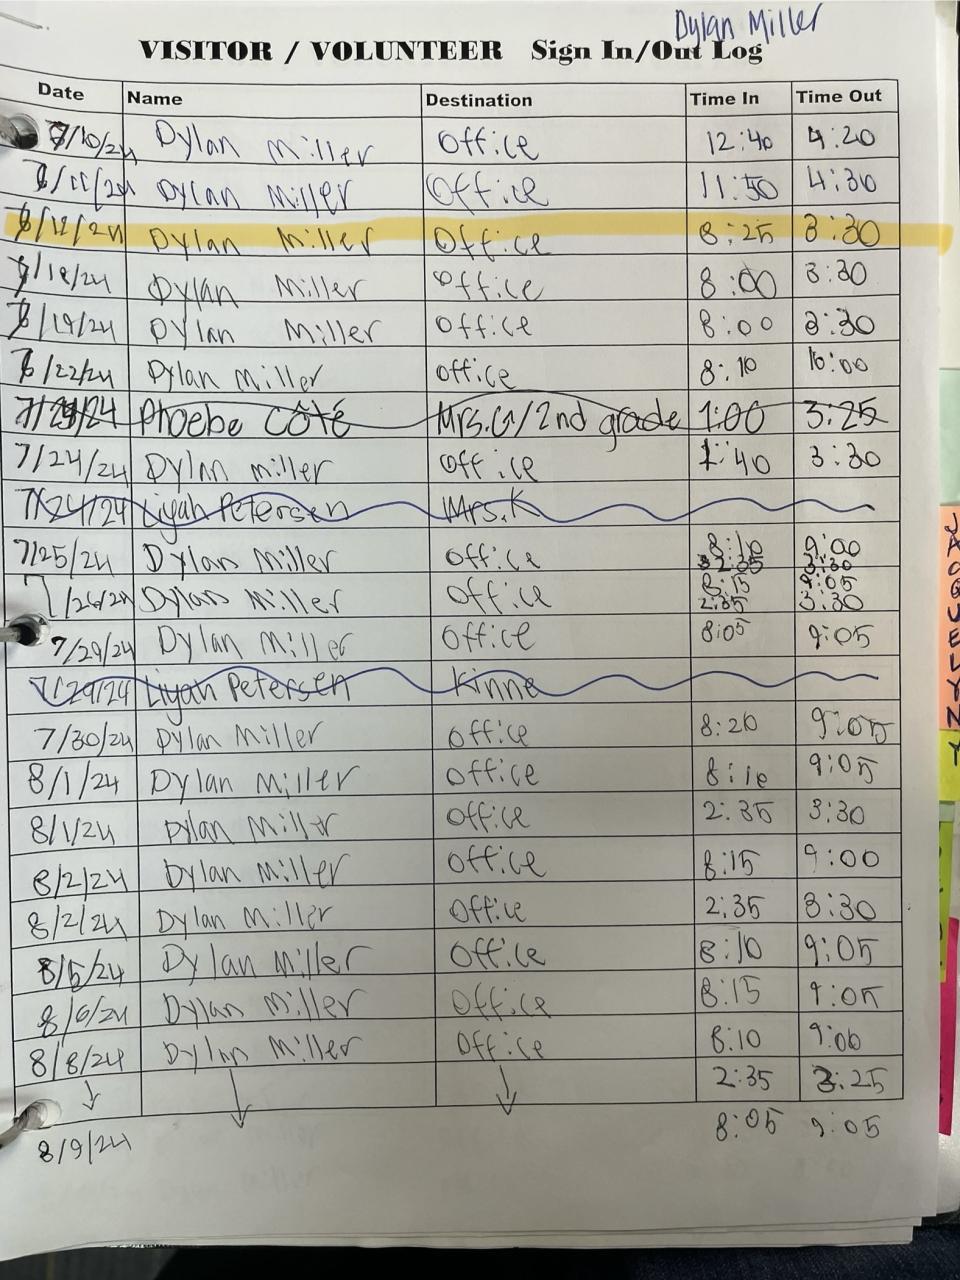 Dylan Miller
VISITOR / VOLUNTEER Sign In/Out Log
Date Name Destination Time In Time Out
/10/24 Dylan Miller Office 12:40 4:20
/11/24 Dylan Miller Office 11:50 4:30
/12/24 Dylan Miller Office 8:25 3:30
/18/24 Dylan Miller Office 8:00 3:30
/19/24 Dylan Miller Office 8:00 3:30
/22/24 Dylan Miller office 8:10 10:00
Phoebe Côté Mrs.G/2nd grade 1:00 3:25
7/24/24 Dylan miller Office 1:40 3:30
7/24/24 Liyah Petersen Mrs.K
7/25/24 Dylan Miller Office 8:10 9:00
2:35 3:30
7/26/24 Dylan Miller Office 8:15 9:05
2:35 3:30
7/29/24 Dylan Miller Office 8:05 9:05
7/29/24 Liyah Petersen Kinne
7/30/24 Dylan Miller Office 8:20 9:05
8/1/24 Dylan Miller Office 8:10 9:05
8/1/24 Dylan Miller Office 2:35 3:30
8/2/24 Dylan Miller Office 8:15 9:00
8/2/24 Dylan Miller Office 2:35 3:30
8/5/24 Dylan Miller Office 8:10 9:05
8/6/24 Dylan Miller Office 8:15 9:05
8/8/24 Dylan Miller Office 8:10 9:00
2:35 3:25
8/9/24 8:05 9:05
JACQUELYN
Y